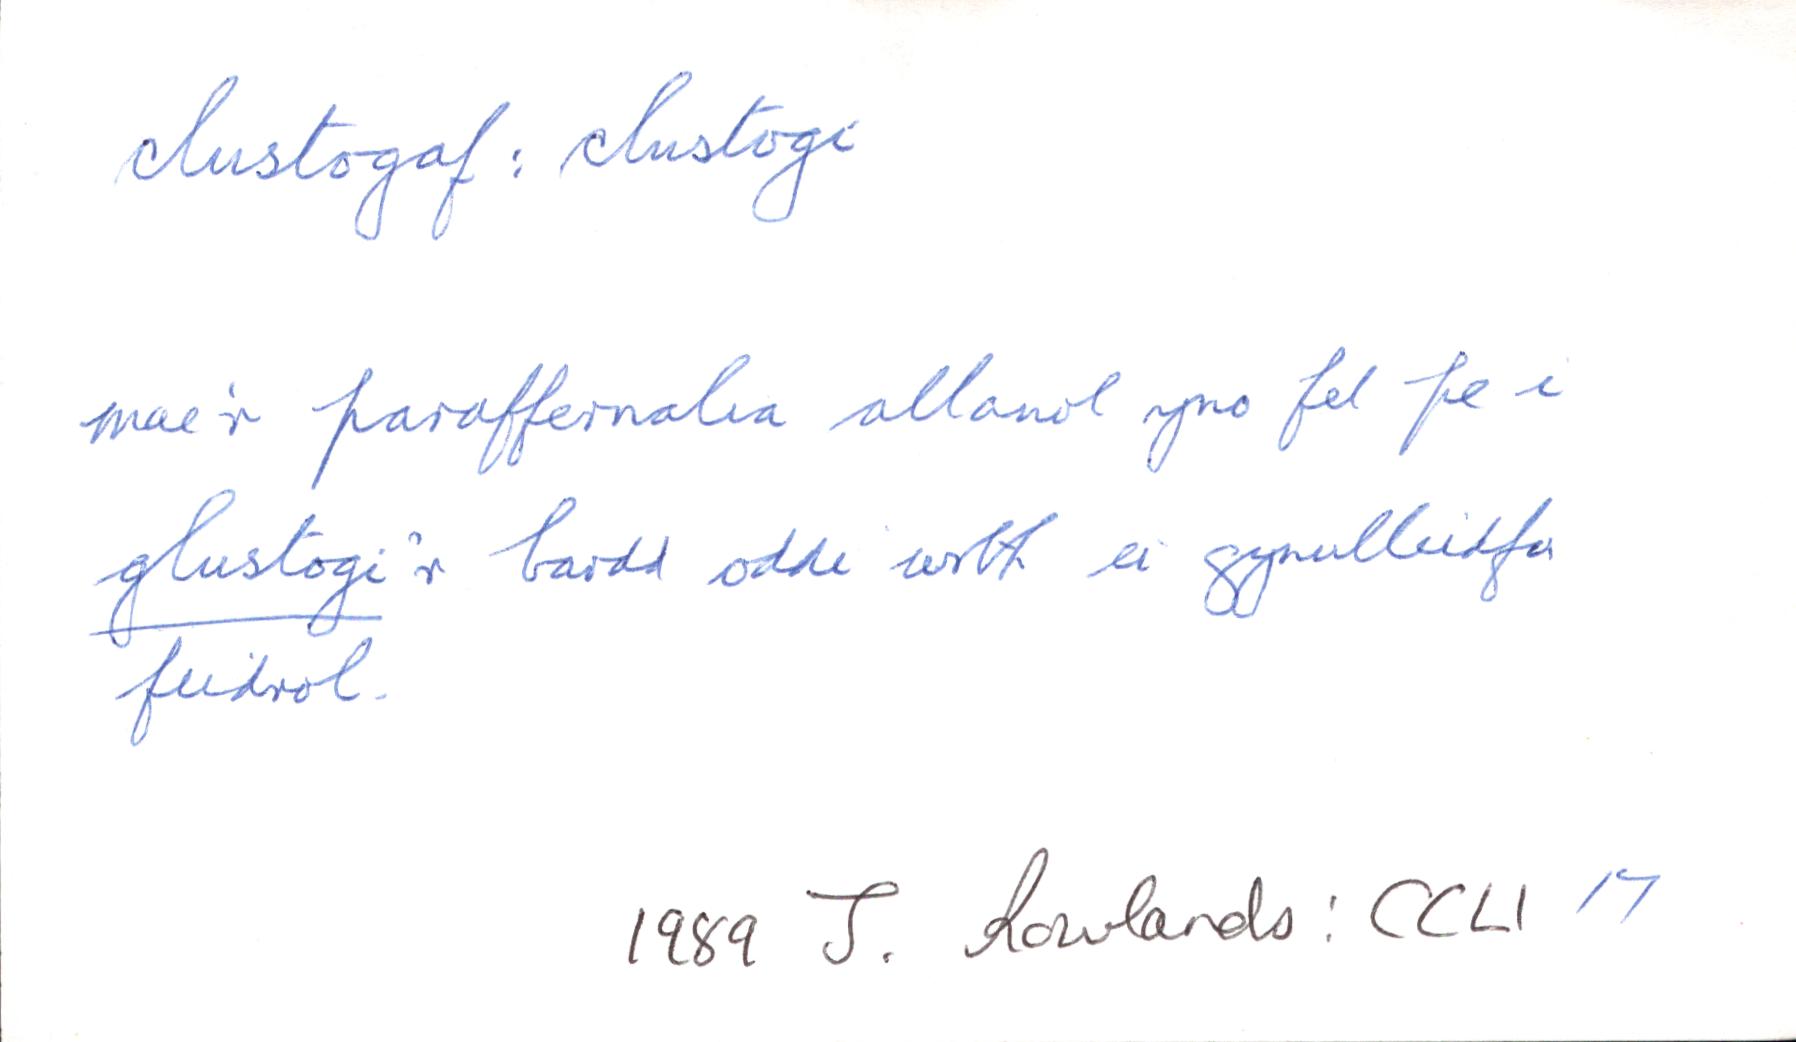 clustogaf: clustogi
mae'r paraffernalia allanol yno fel pe i
glustogi'r bardd oddi wrth ei gynulleidfa
feidrol.
1989 J. Rowlands: CCLl 17